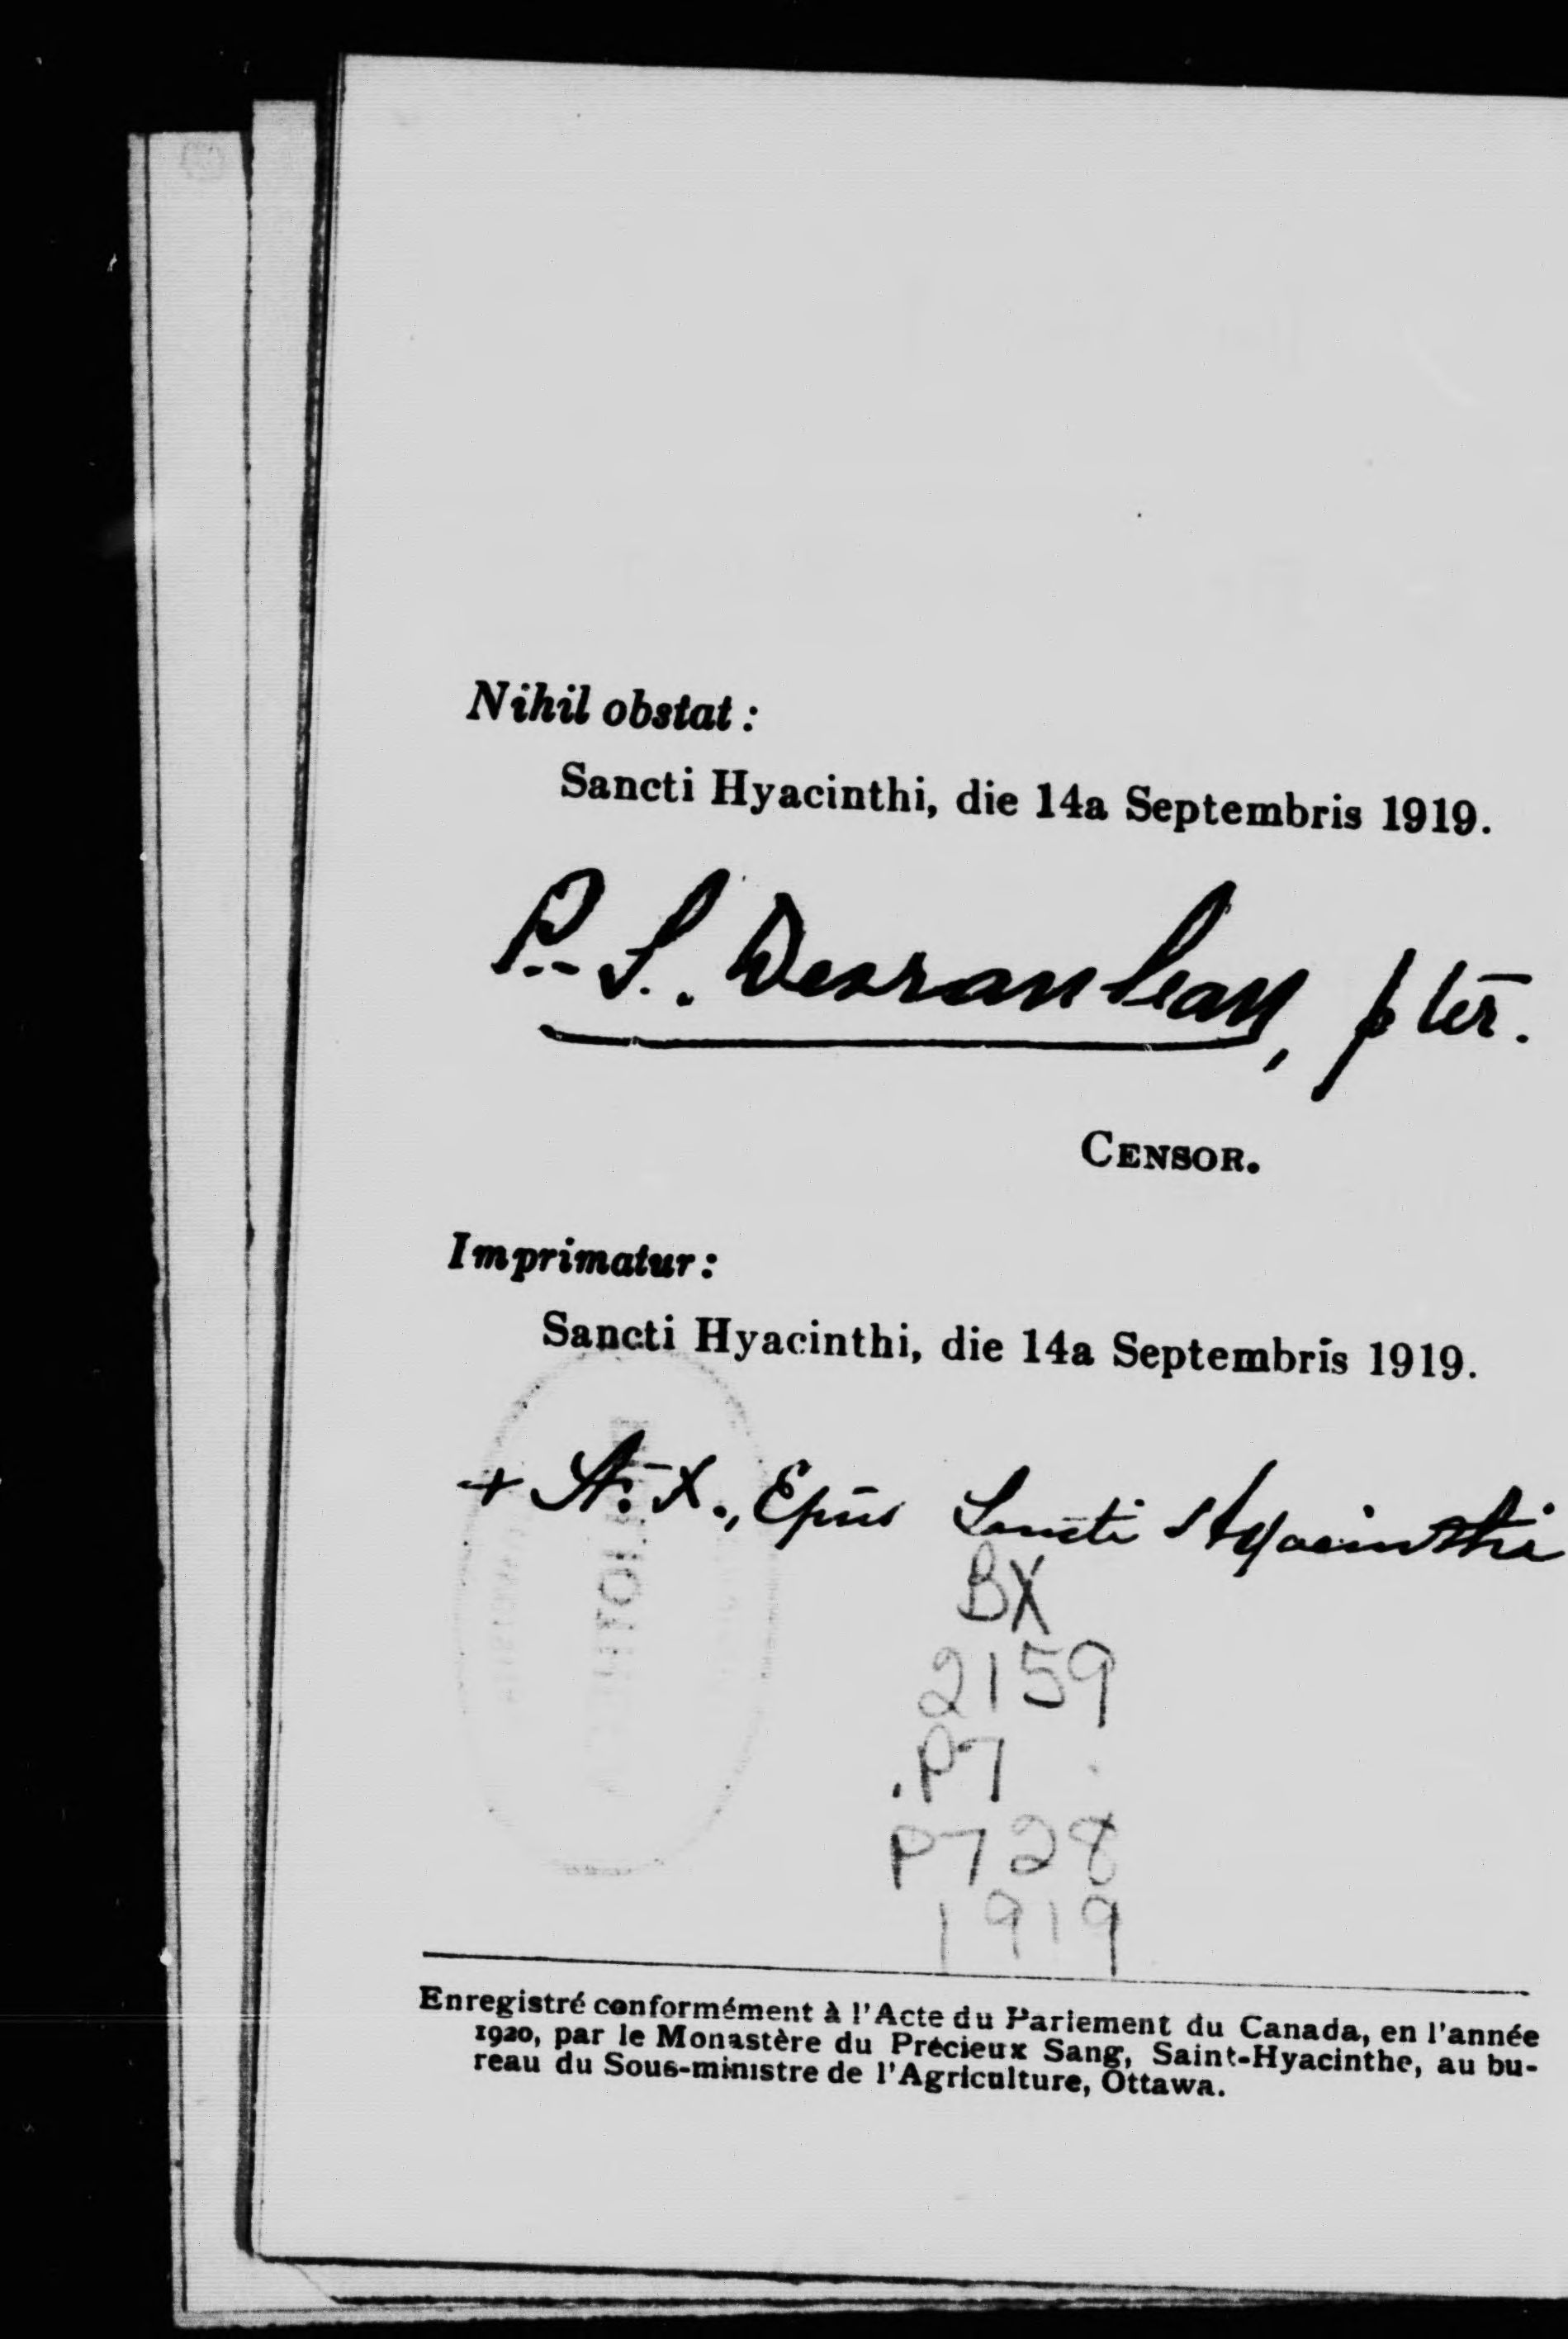 Nihil obstat :
Sancti Hyacinthi, die 14a Septembris 1919.
P.-S. Desranleau, pter.
CENSOR.
Imprimatur :
Sancti Hyacinthi, die 14a Septembris 1919.
+ A. X., Epūs Sancti Hyacinthi
BX
2159
.P7
P728
1919
Enregistré conformément à l'Acte du Parlement du Canada, en l'année
1920, par le Monastère du Précieux Sang, Saint-Hyacinthe, au bu-
reau du Sous-ministre de l'Agriculture, Ottawa.